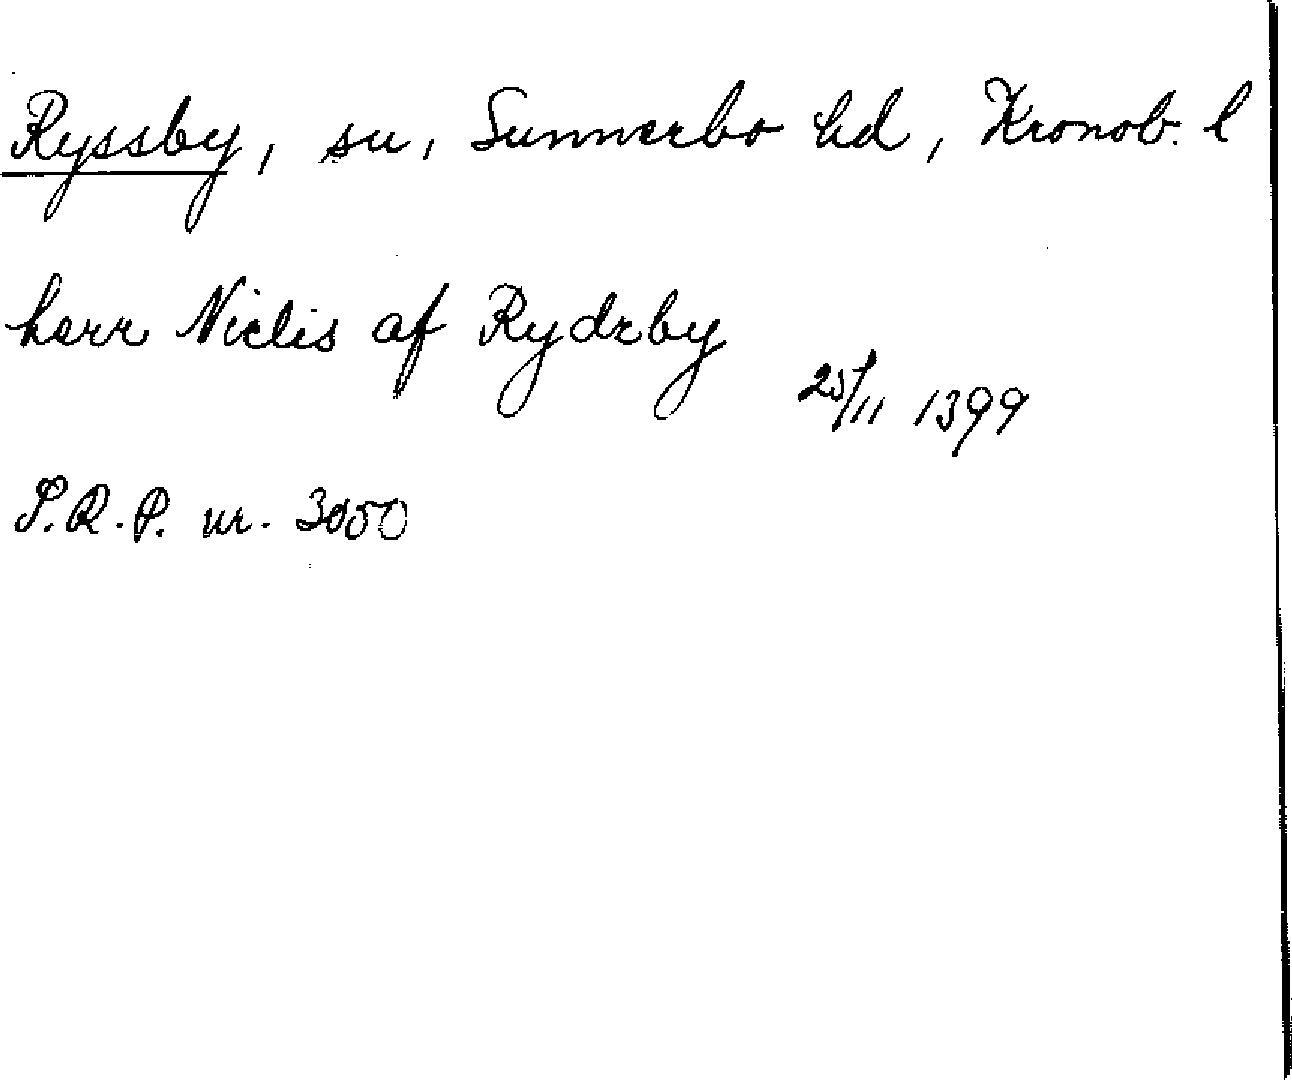 Ryssby, su, Sunnerbo hd, Kronob. l
herr Niclis af Rydzby
25/11 1399
S.R.P. nr. 3050